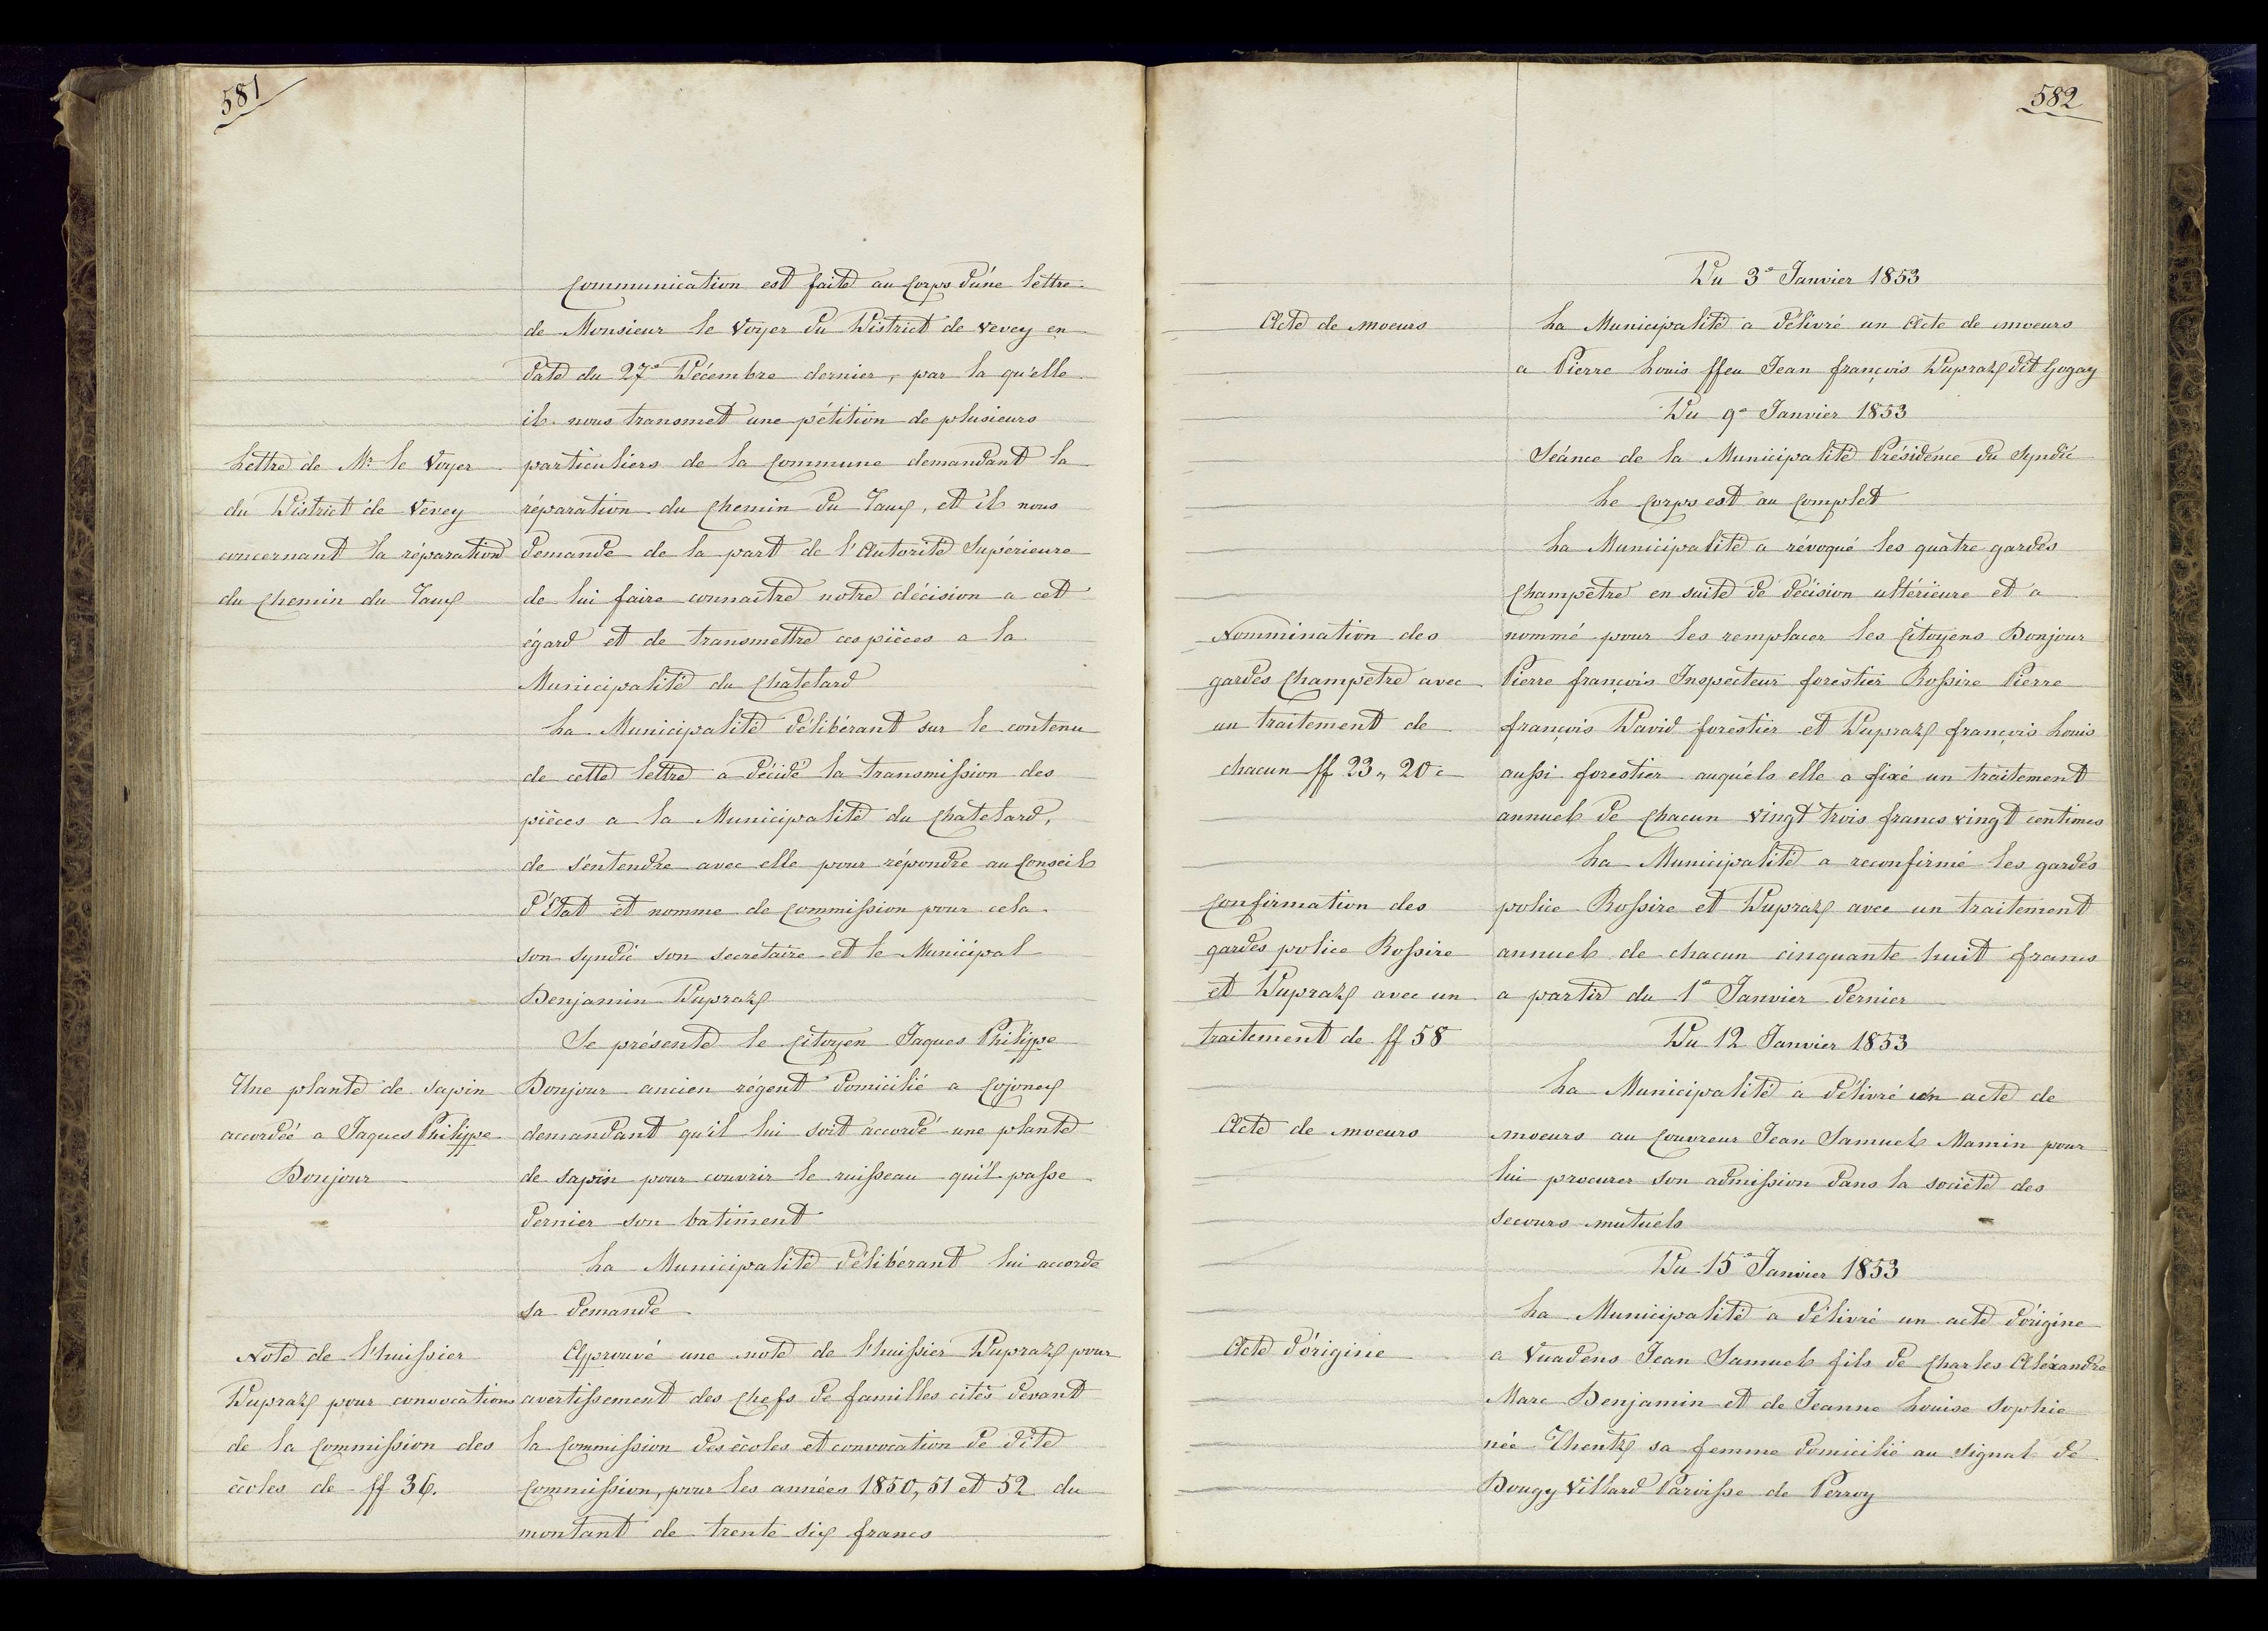 581
Communication est faite au Corps d'une lettre
de Monsieur le Voyer du District de Vevey en
date du 27e Décembre dernier, par la qu'elle
il nous transmet une pétition de plusieurs
Lettre de Mr le Voyer
du District de Vevey
concernant la réparation
du Chemin du Taux
particuliers de la Commune demandant la
réparation du Chemin du Taux, et il nous
demande de la part de l'Autorité Supérieure
de lui faire connaitre notre décision a cet
égard et de transmettre ces pièces a la
Municipalité du Chatelard
La Municipalité délibérant sur le contenu
de cette lettre a décidé la transmission des
pièces a la Municipalité du Chatelard,
de s'entendre avec elle pour répondre au Conseil
d'Etat et nomme de Commission pour cela
son Syndic son secrétaire et le Municipal
Benjamin Dupraz
Se présente le Citoyen Jaques Philippe
Une plante de sapin
accordée a Jaques Philippe
Bonjour
Bonjour ancien régent domicilié a Cojonex
demandant qu'il lui soit accordé une plante
de sapin pour couvrir le ruisseau qu'il passe
dernier son batiment
La Municipalité délibérant lui accorde
sa demande
Note de l'huissier
Dupraz pour convocations
de la Commission des
écoles de ff 36.
Approuvé une note de l'huissier Dupraz pour
avertissement des Chefs de familles cités devant
la Commission des écoles et convocation de dite
Commission, pour les années 1850, 51 et 52 du
montant de trente six francs
582
Du 3e Janvier 1853
Acte de moeurs
La Municipalité a délivré un Acte de moeurs
a Pierre Louis ffeu Jean françois Dupraz dit Gogay
Du 9e Janvier 1853
Séance de la Municipalité Présidence du Syndic
Le Corps est au Complet
La Municipalité a révoqué les quatre gardes
Champêtre en suite de décision ultérieure et a
Nommination des
gardes Champetre avec
un traitement de
chacun ff 23,, 20 c
nommé pour les remplacer les Citoyens Bonjour
Pierre françois Inspecteur forestier Rossire Pierre
françois David forestier et Dupraz françois Louis
aussi forestier auquéls elle a fixé un traitement
annuel de Chacun vingt trois francs vingt centimes
La Municipalité a reconfirmé les gardes
Confirmation des
gardes police Rossire
et Dupraz avec un
traitement de ff 58
police Rossire et Dupraz avec un traitement
annuel de chacun cinquante huit francs
a partir du 1e Janvier dernier
Du 12 Janvier 1853
La Municipalité a délivré un acte de
Acte de moeurs
moeurs au Couvreur Jean Samuel Mamin pour
lui procurer son admission dans la société des
secours mutuels
Du 15e Janvier 1853
La Municipalité a délivré un acte d'origine
Acte d'origine
a Vuadens Jean Samuel fils de Charles Aléxandre
Marc Benjamin et de Jeanne Louise Sophie
née Thentz sa femme domicilié au Signal de
Bougy Villard Paroisse de Perroy